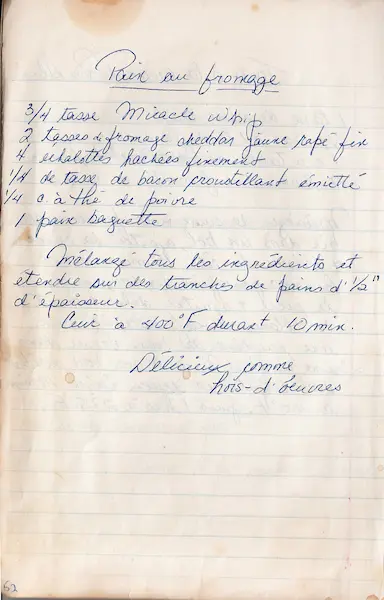 Pain au fromage
3/4 tasse Miracle Whip
2 tasses de fromage cheddar jaune rapé fin
4 échalottes hachées finement
1/4 de tasse de bacon croustillant émietté
1/4 c. à thé de poivre
1 pain baguette
Mélangé tous les ingrédients et
étendre sur des tranches de pains d'1/2"
d'épaisseur.
Cuir à 400°F durant 10 min.
Délicieux comme
hors-d'oeuvres
62